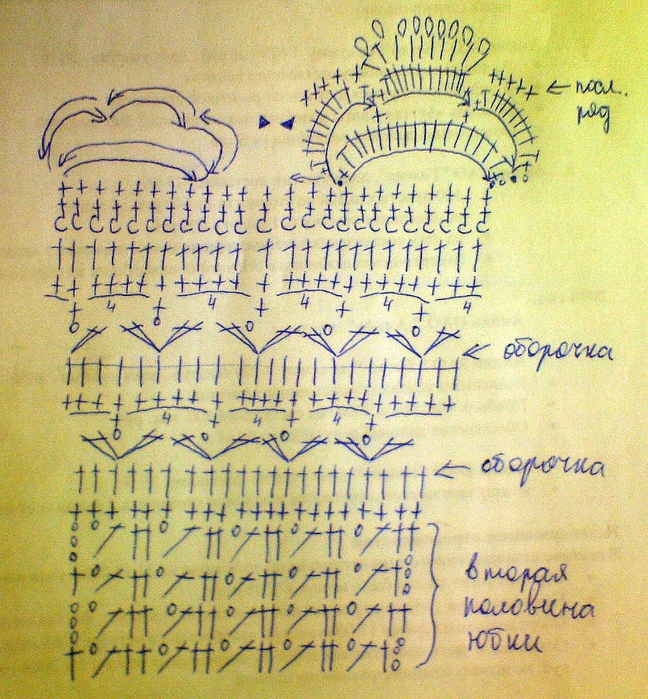 ← посл.
ряд
4 4 4 4 4
← оборочка
4 4 4
← оборочка
вторая
половина
юбки